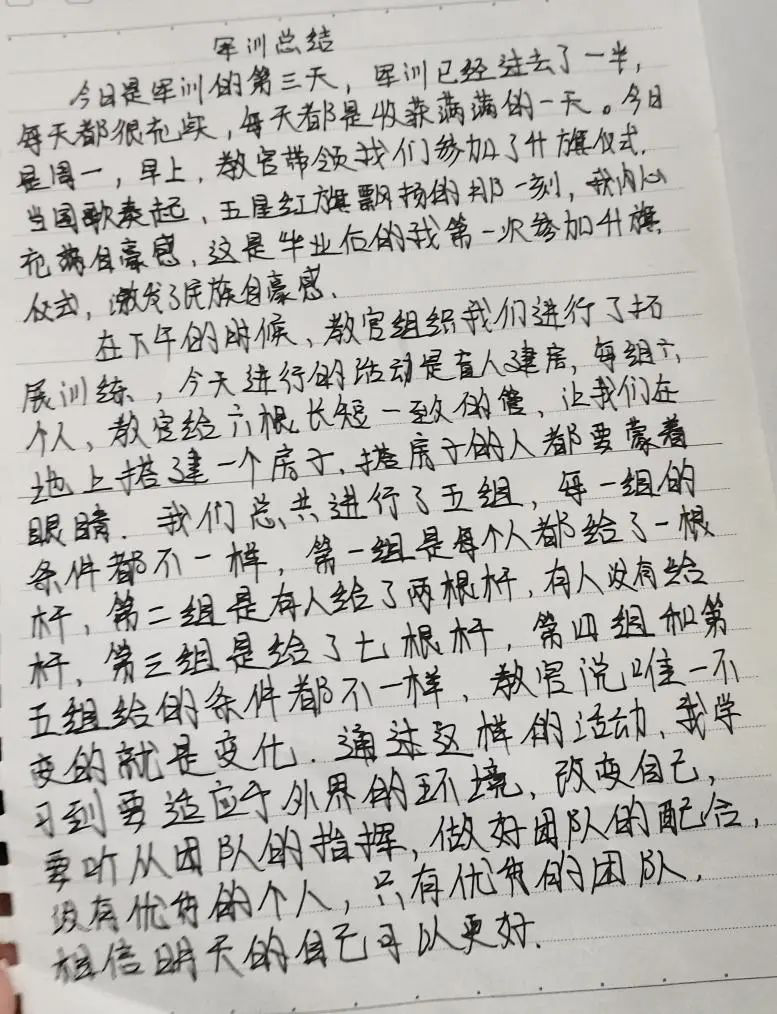 军训总结
今日是军训的第三天，军训已经过去了一半，
每天都很充实，每天都是收获满满的一天。今日
是周一，早上，教官带领我们参加了升旗仪式.
当国歌奏起，五星红旗飘扬的那一刻，我内心
充满自豪感，这是毕业后的我第一次参加升旗
仪式，激发了民族自豪感.
在下午的时候，教官组织我们进行了拓
展训练，今天进行的活动是盲人建房，每组六
个人，教官给六根长短一致的管，让我们在
地上搭建一个房子，搭房子的人都要蒙着
眼睛. 我们总共进行了五组，每一组的
条件都不一样，第一组是每个人都给了一根
杆，第二组是有人给了两根杆，有人没有给
杆，第三组是给了七根杆，第四组和第
五组给的条件都不一样，教官说唯一不
变的就是变化. 通过这样的活动，我学
习到要适应于外界的环境，改变自己，
要听从团队的指挥，做好团队的配合，
没有优秀的个人，只有优秀的团队，
相信明天的自己可以更好.